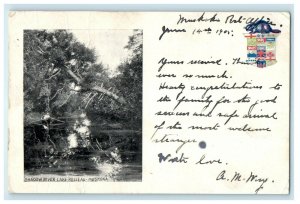 Muskoka
June 14th 1905.
Yours received. Thanks
ever so much.
Hearty congratulations to
the family for the good
services and safe arrival
of the most welcome
stranger.
With love.
A. M. Way.
SHADOW RIVER, LAKE ROSSEAU, MUSKOKA